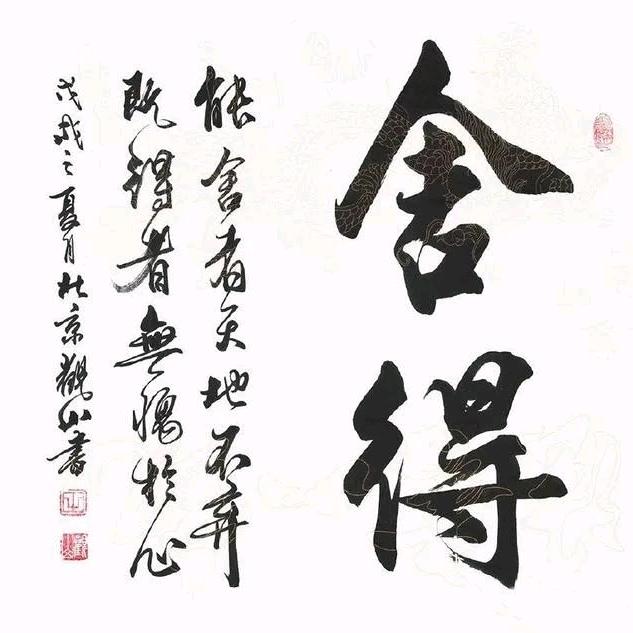 舍得
能舍者天地不弃
既得者無愧於心
戊戌之夏月於京觀山書